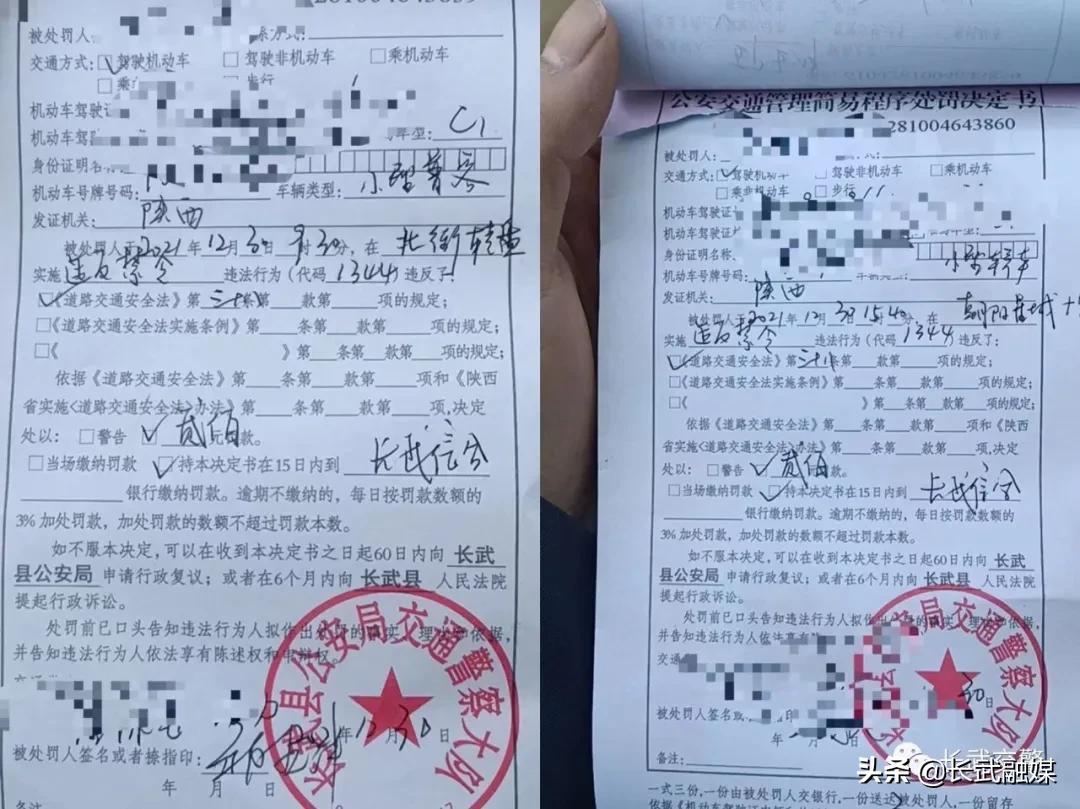 被处罚人:
交通方式: 驾驶机动车 □ 驾驶非机动车 □ 乘机动车
机动车驾驶证
机动车驾 C1
身份证明名称
机动车号牌号码: 车辆类型: 小型普客
发证机关: 陕西
被处罚人于2021年12月30日9时30分,在 北街转盘
实施 违反禁令 违法行为(代码 1344 违反了:
《道路交通安全法》第三十八条第 款第 项的规定;
□《道路交通安全法实施条例》第 条第 款第 项的规定;
□《 》第 条第 款第 项的规定;
依据《道路交通安全法》第 条第 款第 项和《陕西
省实施<道路交通安全法>办法》第 条第 款第 项,决定
处以: □警告 ✓ 贰佰元罚款。
□当场缴纳罚款 ✓持本决定书在15日内到 长武信合
银行缴纳罚款。逾期不缴纳的,每日按罚款数额的
3%加处罚款,加处罚款的数额不超过罚款本数。
如不服本决定,可以在收到本决定书之日起60日内向 长武
县公安局 申请行政复议;或者在6个月内向 长武县 人民法院
提起行政诉讼。
处罚前已口头告知违法行为人拟作出处罚的事实、理由和依据,
并告知违法行为人依法享有陈述权和申辩权。
年12月30日
被处罚人签名或者捺指印:
年 月 日
备注
长武县公安局交通警察大队
公安交通管理简易程序处罚决定书
281004643860
被处罚人:
交通方式: 驾驶机动车 驾驶非机动车 □乘机动车
□乘非机动车 □步行
机动车驾驶证
身份证明名称、
机动车号牌号码: 车辆类型: 小型轿车
发证机关: 陕西
被处罚人于2021年12月30日15时40分,在 朝阳县城十
实施 违反禁令 违法行为(代码 1344 违反了:
《道路交通安全法》第三十八条第 款第 项的规定;
□《道路交通安全法实施条例》第 条第 款第 项的规定;
□《 》第 条第 款第 项的规定;
依据《道路交通安全法》第 条第 款第 项和《陕西
省实施<道路交通安全法>办法》第 条第 款第 项,决定
处以: □警告 ✓ 贰佰 款。
□当场缴纳罚款 ✓持本决定书在15日内到 长武信合
银行缴纳罚款。逾期不缴纳的,每日按罚款数额的
3%加处罚款,加处罚款的数额不超过罚款本数。
如不服本决定,可以在收到本决定书之日起60日内向 长武
县公安局 申请行政复议;或者在6个月内向 长武县 人民法院
提起行政诉讼。
处罚前已口头告知违法行为人拟作出处罚的事实、理由和依据,
并告知违法行为人依法享有
交通
30日
被处罚人签名或 指印
年 月 日
备注:
局交通警察大队
一式三份,一份由被处罚人交银行,一份送达被处罚人,一份留存
依据《机动车驾驶证
长武交警
头条 @长武融媒